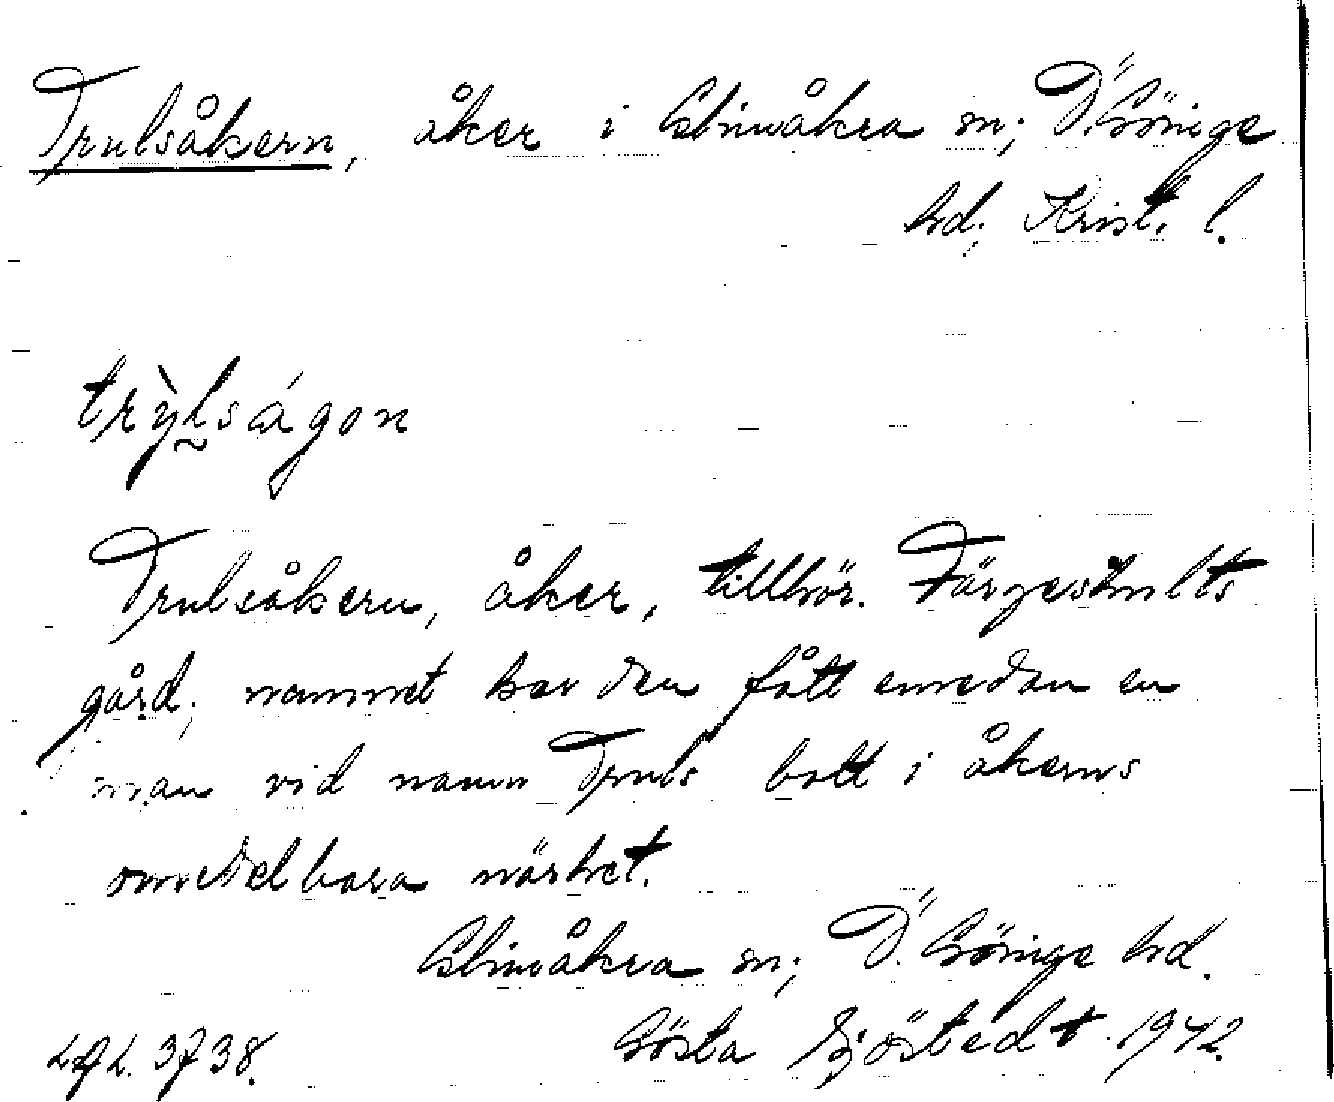 Trulsåkern, åker i Glimåkra sn; Ö. Göinge
hd; Krist. l.
trỳlságon
Trulsåkern, åker, tillhör. Färgeshults
gård; namnet har den fått emedan en
man vid namn Truls bott i åkerns
omedelbara närhet.
Glimåkra sn; Ö. Göinge hd.
Gösta Sjöstedt 1942.
LAL. 3738.